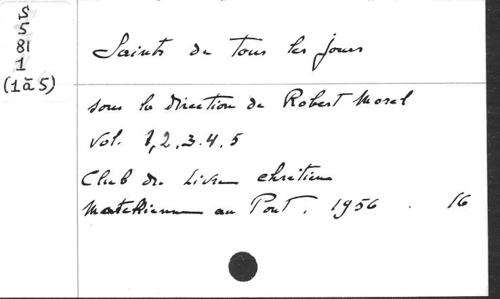 S
5
81
1
(1 à 5)
Saints de tous les jours
sous la direction de Robert Morel
Vol. 1, 2, 3. 4. 5
Club du Livre chrétien
au Pont, 1956 . 16